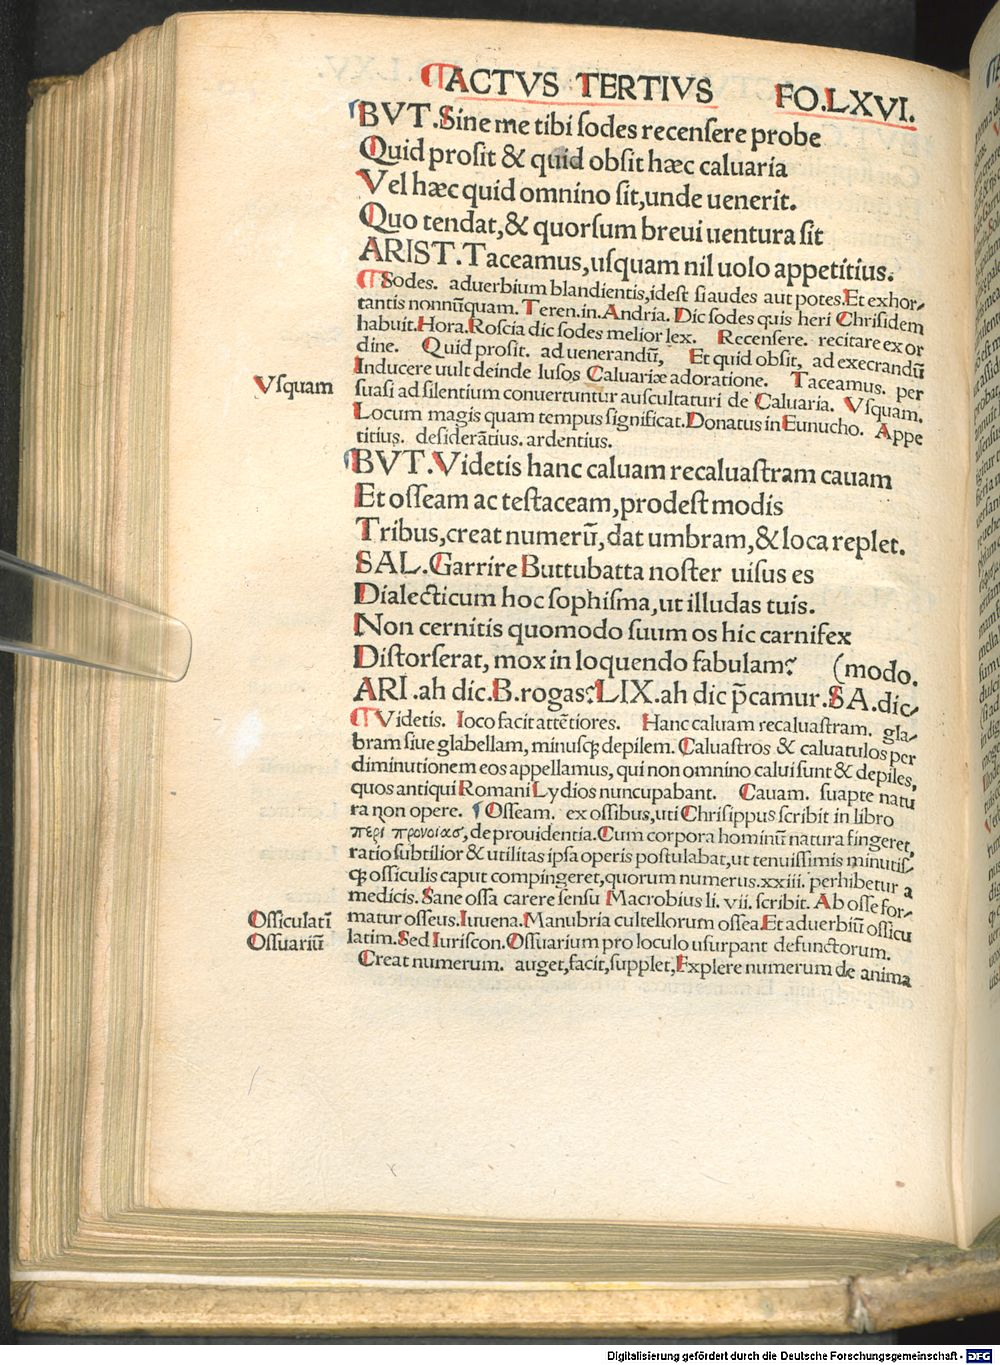 ACTVS TERTIVS FO.LXVI.
BVT.Sine me tibi ſodes recenſere probe
Quid proſit & quid obſit hæc caluaria
Vel hæc quid omnino ſit,unde uenerit.
Quo tendat,& quorſum breui uentura ſit
ARIST.Taceamus,uſquam nil uolo appetitius.
¶Sodes. aduerbium blandientis,ideſt ſi audes aut potes.Et exhor-
tantis nonnūquam. Teren.in.Andria. Dic ſodes quis heri Chriſidem
habuit.Hora.Roſcia dic ſodes melior lex. Recenſere. recitare ex or
dine. Quid proſit. ad uenerandū, Et quid obſit, ad execrandū
Inducere uult deinde luſos Caluariæ adoratione. Taceamus. per
Vſquam
ſuaſi ad ſilentium conuertuntur auſcultaturi de Caluaria. Vſquam.
Locum magis quam tempus ſignificat.Donatus in Eunucho. Appe
titius. deſiderātius. ardentius.
BVT.Videtis hanc caluam recaluaſtram cauam
Et oſſeam ac teſtaceam,prodeſt modis
Tribus,creat numerū,dat umbram,& loca replet.
SAL.Garrire Buttubatta noſter uiſus es
Dialecticum hoc ſophiſma,ut illudas tuis.
Non cernitis quomodo ſuum os hic carnifex
Diſtorſerat, mox in loquendo fabulam? (modo.
ARI.ah dic.B.rogas?LIX.ah dic p̄camur.SA.dic-
¶Videtis. Ioco facit attētiores. Hanc caluam recaluaſtram. gla-
bram ſiue glabellam, minuſq; depilem. Caluaſtros & caluatulos per
diminutionem eos appellamus, qui non omnino calui ſunt & depiles,
quos antiqui Romani Lydios nuncupabant. Cauam. ſuapte natu
ra non opere. ¶Oſſeam. ex oſſibus,uti Chriſippus ſcribit in libro
περι προνοιασ,de prouidentia.Cum corpora hominū natura fingeret,
ratio ſubtilior & utilitas ipſa operis poſtulabat,ut tenuiſſimis minutiſ-
q; oſſiculis caput compingeret,quorum numerus.xxiii. perhibetur a
medicis. Sane oſſa carere ſenſu Macrobius li. vii. ſcribit. Ab oſſe for-
Oſſiculatī
matur oſſeus.Iuuena.Manubria cultellorum oſſea.Et aduerbiū oſſicu
Oſſuariū
latim.Sed Iuriſcon.Oſſuarium pro loculo uſurpant defunctorum.
Creat numerum. auget,facit,ſupplet,Explere numerum de anima
Digitalisierung gefördert durch die Deutsche Forschungsgemeinschaft - DFG